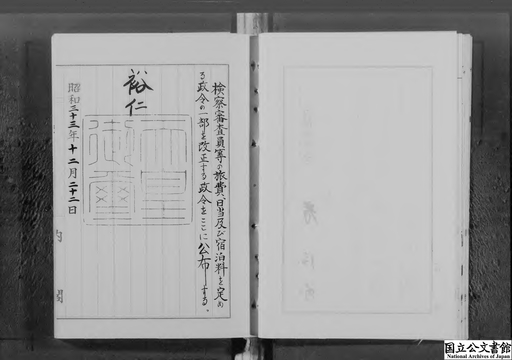 検察審査員等の旅費、日当及び宿泊料を定め
る政令の一部を改正する政令をここに公布する。
裕仁
天皇
御璽
昭和三十三年十二月二十二日
内閣
国立公文書館
National Archives of Japan